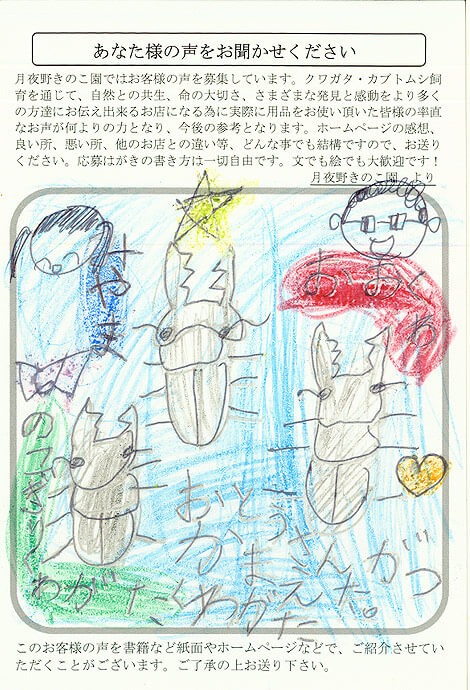 あなた様の声をお聞かせください
月夜野きのこ園ではお客様の声を募集しています。クワガタ・カブトムシ飼
育を通じて、自然との共生、命の大切さ、さまざまな発見と感動をより多く
の方達にお伝え出来るお店になる為に実際に用品をお使い頂いた皆様の率直
なお声が何よりの力となり、今後の参考となります。ホームページの感想、
良い所、悪い所、他のお店との違い等、どんな事でも結構ですので、お送り
ください。応募はがきの書き方は一切自由です。文でも絵でも大歓迎です！
月夜野きのこ園 より
みやま
おおくわ
のこぎり
くわがた
おとうさんが
つかまえた
くわがただ。
このお客様の声を書籍など紙面やホームページなどで、ご紹介させてい
ただくことがございます。ご了承の上お送り下さい。